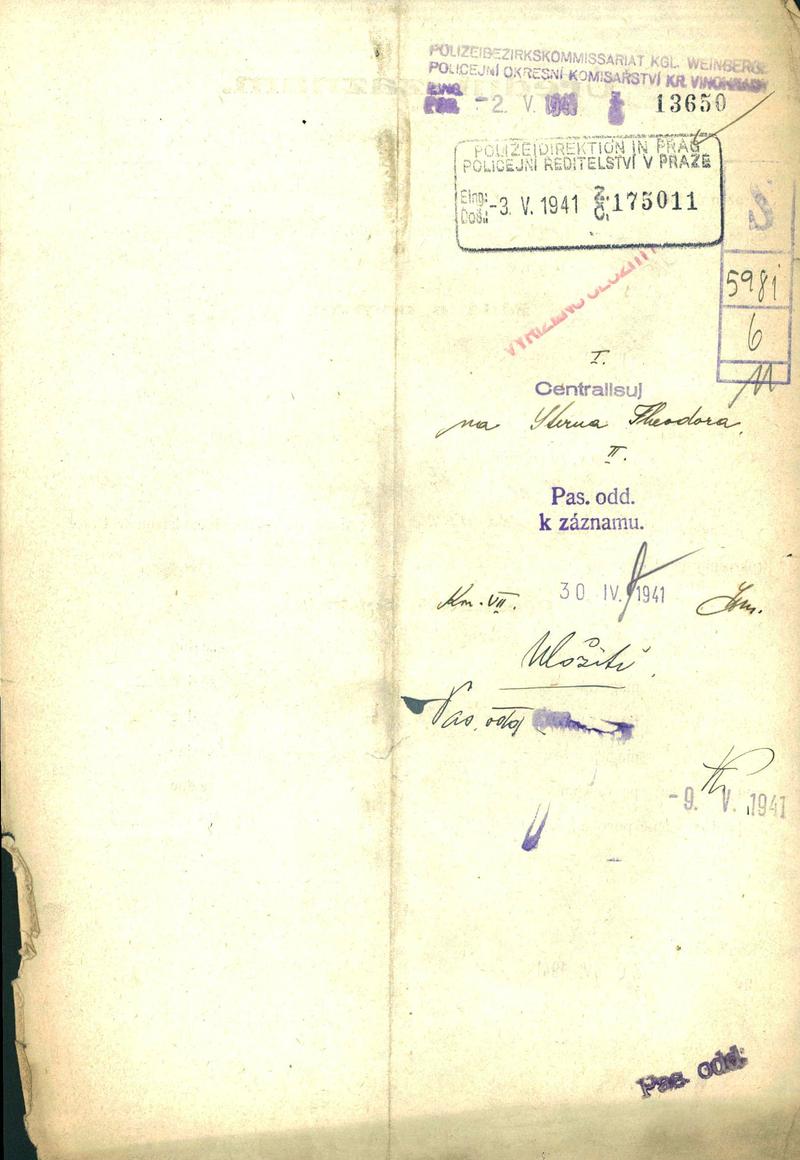 POLIZEIBEZIRKSKOMMISSARIAT KGL. WEINBERGE
POLICEJNÍ OKRESNÍ KOMISAŘSTVÍ KR. VINOHRADY
-2. V. 1941 13650
POLIZEIDIREKTION IN PRAG
POLICEJNÍ ŘEDITELSTVÍ V PRAZE
Eing:
Doš.: -3. V. 1941 175011
S
5981
6
11
VYŘÍZENO ULOŽITI
I.
Centralisuj
na Sterna Theodora.
II.
Pas. odd.
k záznamu.
Km. VII. 30 IV. 1941
Uložiti.
Pas. odd
-9. V. 1941
Pas. odd.